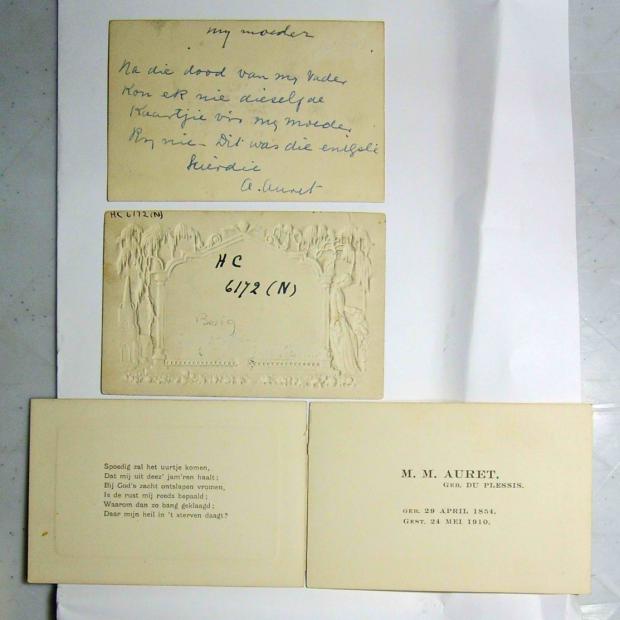 my moeder
Na die dood van my Vader
Kon ek nie dieselfde
Kaartjie vir my moeder
Kry nie - Dit was die
hierdie
A. Auret
HC 6172 (N)
HC
6172 (N)
Spoedig zal het uurtje komen,
Dat mij uit deez' jam'ren haalt;
Bij God's zacht ontslapen vromen,
Is de rust mij reeds bepaald;
Waarom dan zo bang geklaagd;
Daar mijn heil in 't sterven daagt?
M. M. AURET,
GEB. DU PLESSIS.
GEB. 29 APRIL 1854.
GEST. 24 MEI 1910.